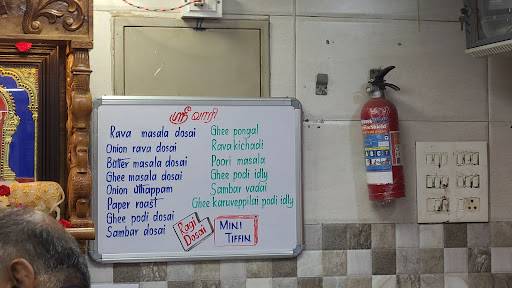 ஸ்ரீ வாரி
Rava masala dosai
Onion rava dosai
Butter masala dosai
Ghee masala dosai
Onion uthappam
Paper roast
Ghee podi dosai
Sambar dosai
Ghee pongal
Rava kichadi
Poori masala
Ghee podi idly
Sambar vadai
Ghee karuveppilai podi idly
Ragi
Dosai
MINI
TIFFIN